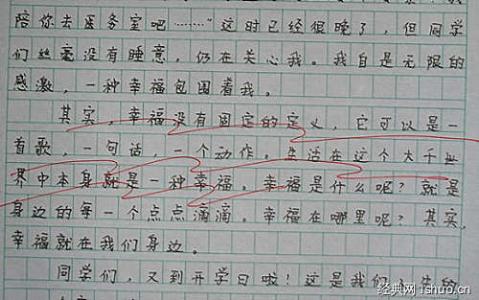 陪你去医务室吧………"这时已经很晚了，但同学
们丝毫没有睡意，仍在关心我。我自是无限的
感激，一种幸福包围着我。
其实，幸福没有固定的定义，它可以是一
首歌，一句话，一个动作。生活在这个大千世
界中本身就是一种幸福。幸福是什么呢？就是
身边的每一个点点滴滴。幸福在哪里呢？其实，
幸福就在我们身边。
同学们，又到开学日啦！这是我们
经典网 1shuo.cn